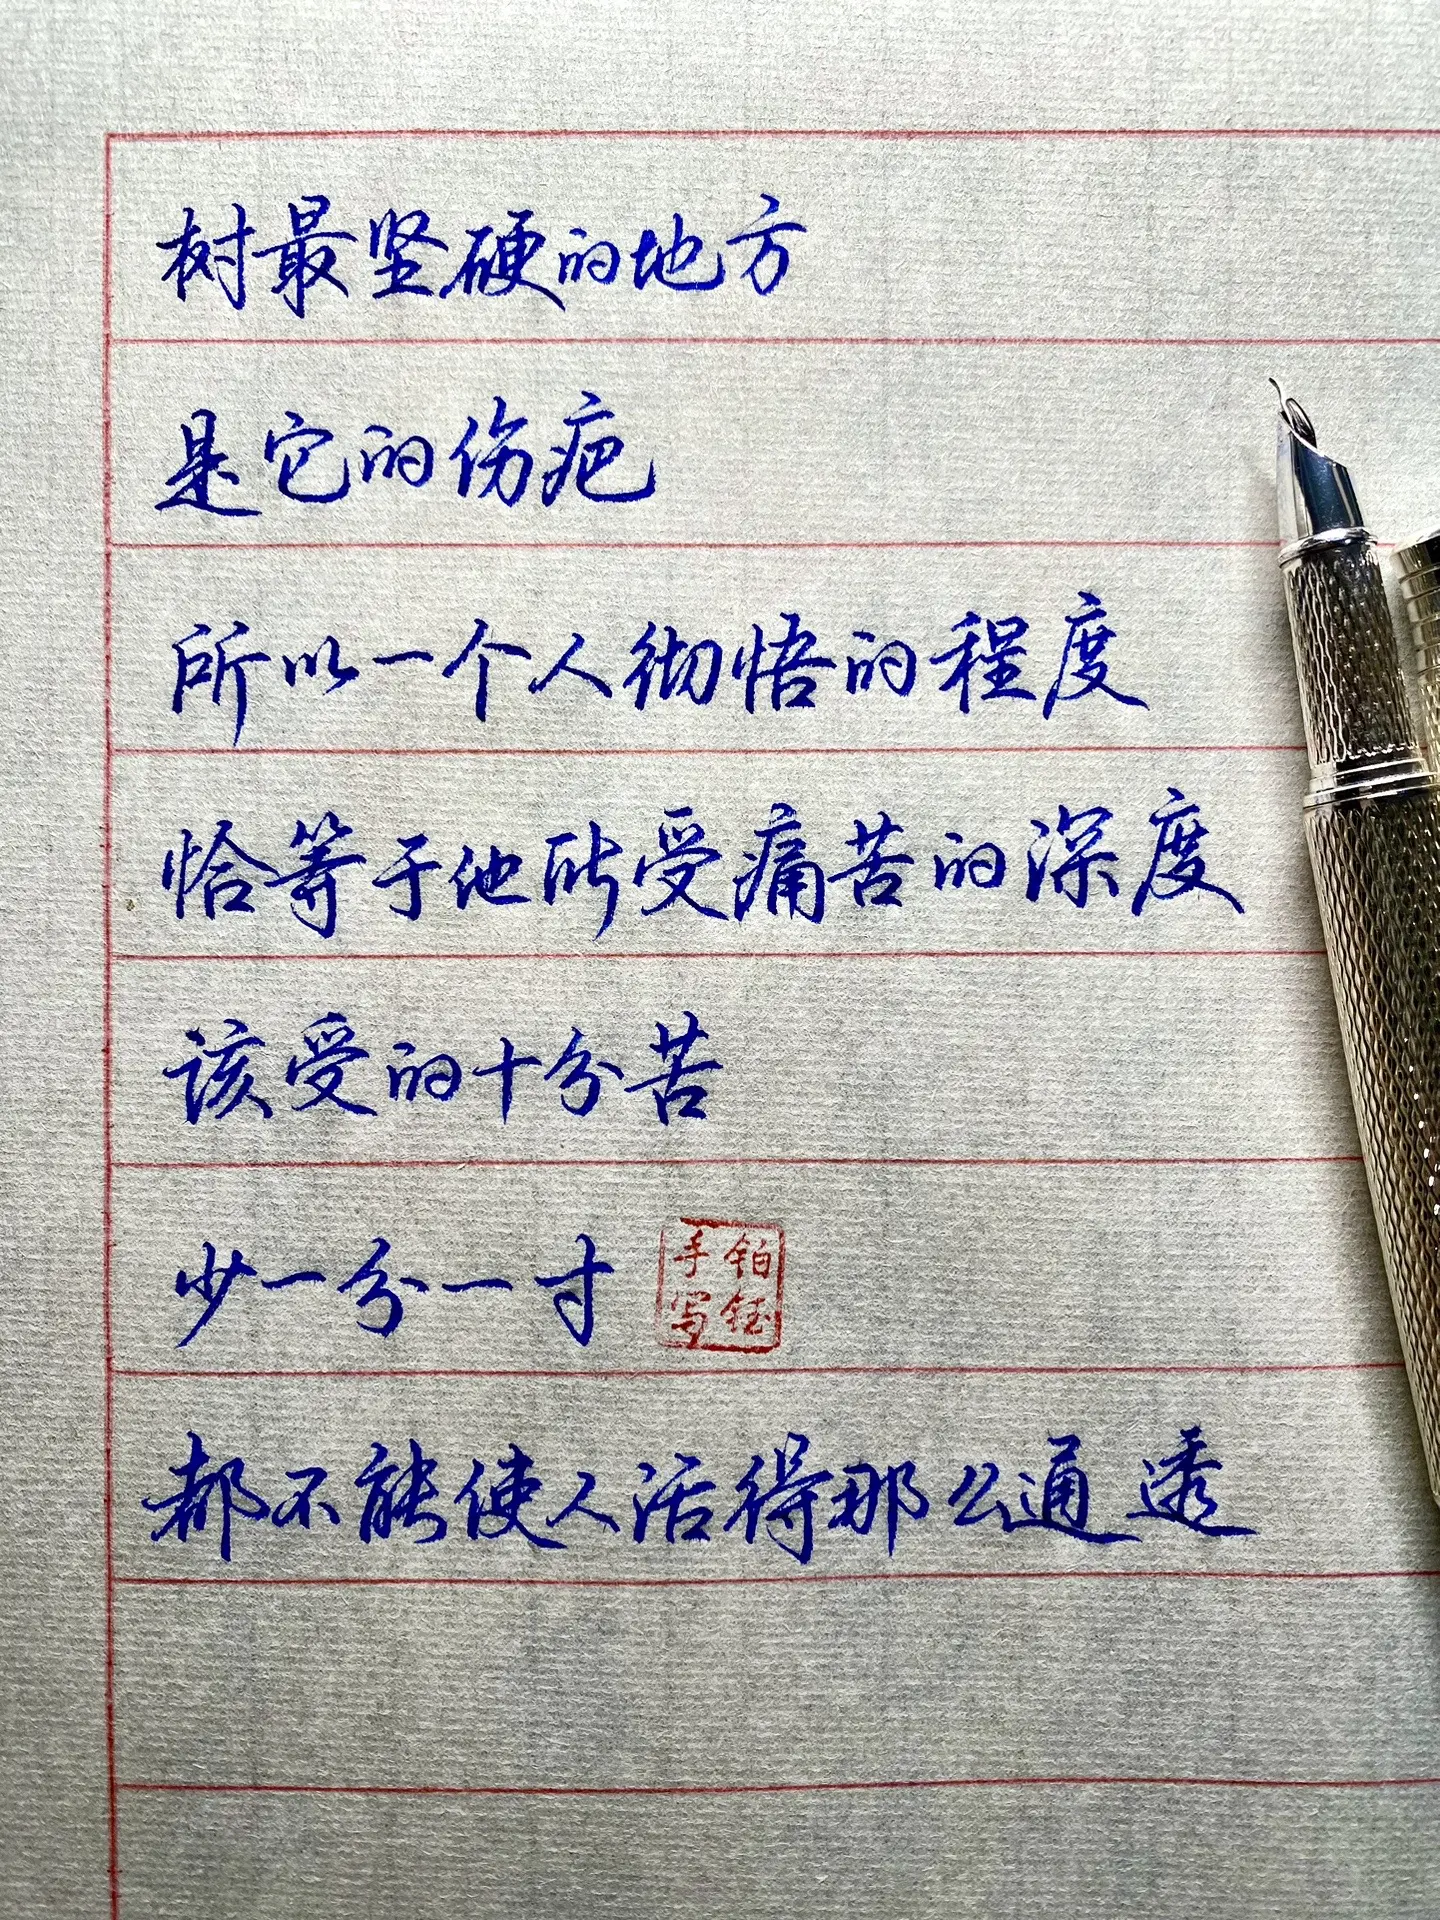 树最坚硬的地方
是它的伤疤
所以一个人彻悟的程度
恰等于他所受痛苦的深度
该受的十分苦
少一分一寸
铂钰手写
都不能使人活得那么通透